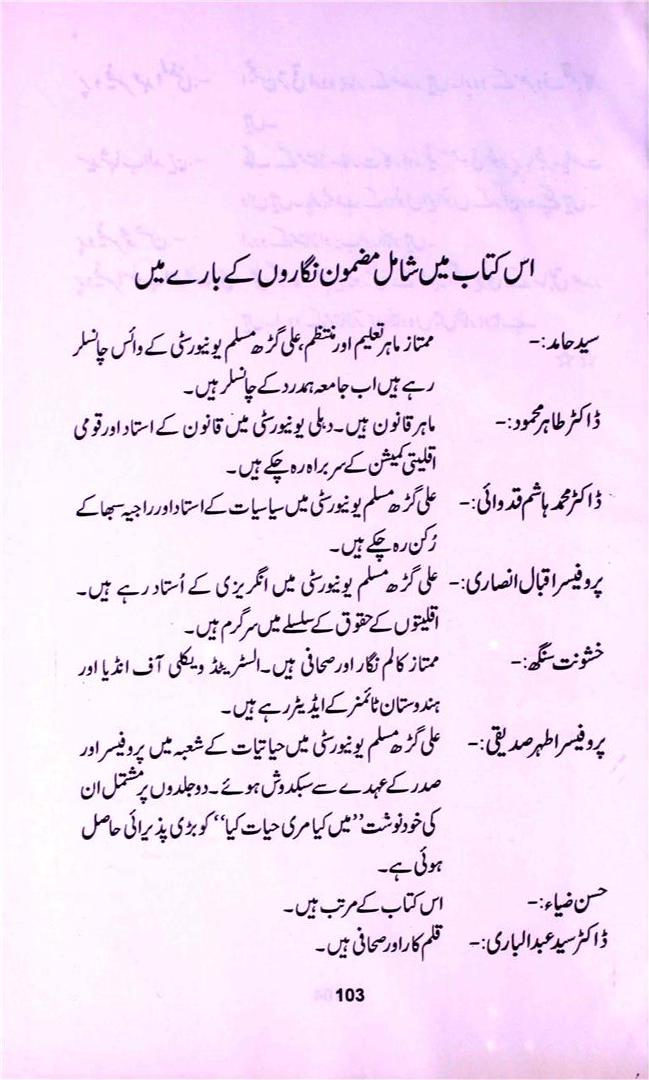 اس کتاب میں شامل مضمون نگاروں کے بارے میں
سید حامد:- ممتاز ماہر تعلیم اور منتظم، علی گڑھ مسلم یونیورسٹی کے وائس چانسلر
رہے ہیں اب جامعہ ہمدرد کے چانسلر ہیں۔
ڈاکٹر طاہر محمود:- ماہر قانون ہیں۔ دہلی یونیورسٹی میں قانون کے استاد اور قومی
اقلیتی کمیشن کے سربراہ رہ چکے ہیں۔
ڈاکٹر محمد ہاشم قدوائی:- علی گڑھ مسلم یونیورسٹی میں سیاسیات کے استاد اور راجیہ سبھا کے
رُکن رہ چکے ہیں۔
پروفیسر اقبال انصاری:- علی گڑھ مسلم یونیورسٹی میں انگریزی کے اُستاد رہے ہیں۔
اقلیتوں کے حقوق کے سلسلے میں سرگرم ہیں۔
خشونت سنگھ:- ممتاز کالم نگار اور صحافی ہیں۔ السٹریٹڈ ویکلی آف انڈیا اور
ہندوستان ٹائمنر کے ایڈیٹر رہے ہیں۔
پروفیسر اطہر صدیقی:- علی گڑھ مسلم یونیورسٹی میں حیاتیات کے شعبہ میں پروفیسر اور
صدر کے عہدے سے سبکدوش ہوئے۔ دو جلدوں پر مشتمل ان
کی خود نوشت ”میں کیا مری حیات کیا“ کو بڑی پذیرائی حاصل
ہوئی ہے۔
حسن ضیاء:- اس کتاب کے مرتب ہیں۔
ڈاکٹر سید عبدالباری:- قلم کار اور صحافی ہیں۔
103